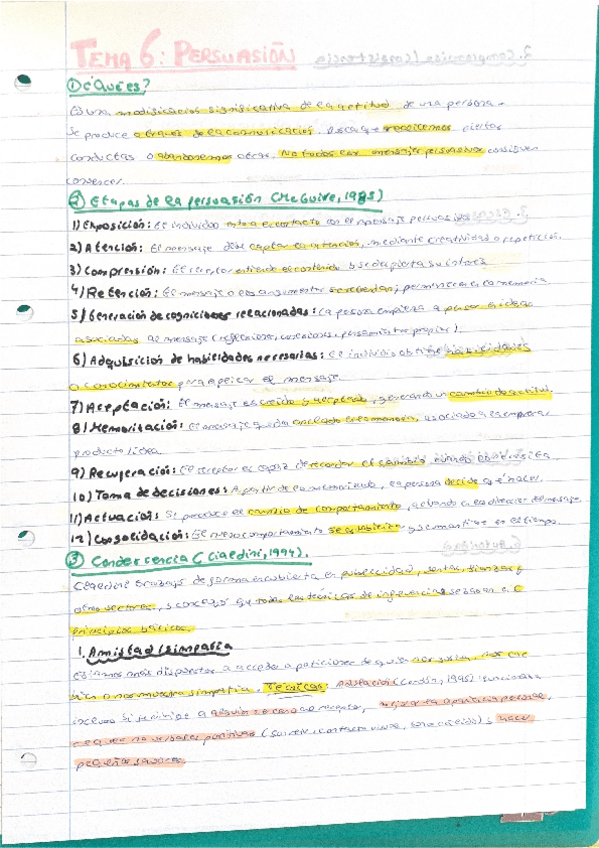 TEMA 6: PERSUASIÓN
① ¿Qué es?
Es una modificación significativa de la actitud de una persona.
Se produce a través de la comunicación. Busca que realicemos ciertas
conductas o abandonemos otras. No todos los mensajes persuasivos consiguen
convencer.
② Etapas de la persuasión (McGuire, 1985)
1) Exposición: El individuo entra en contacto con el mensaje persuasivo.
2) Atención: El mensaje debe captar la atención, mediante creatividad o repetición.
3) Comprensión: El receptor entiende el contenido o se despierta su interés
4) Retención: El mensaje o los argumentos se recuerdan, permanece en la memoria.
5) Generación de cogniciones relacionadas: La persona empieza a pensar en ideas
asociadas al mensaje (reflexiones, pensamientos propios).
6) Adquisición de habilidades necesarias: El individuo obtiene habilidades
o conocimientos para aplicar el mensaje.
7) Aceptación: El mensaje es creído y aceptado, generando un cambio de actitud.
8) Memorización: El mensaje queda anclado en la memoria, asociado a la empresa,
producto/idea.
9) Recuperación: El receptor es capaz de recordar el cambio cuando lo necesita.
10) Toma de decisiones: A partir de lo memorizado, la persona decide qué hacer.
11) Actuación: Se produce el cambio de comportamiento, actuando en la dirección del mensaje.
12) Consolidación: El nuevo comportamiento se y se mantiene en el tiempo.
③ Condescencia (Cialdini, 1994).
Cialdini trabajó de forma encubierta en publicidad, ventas, finanzas y
otros sectores, y concluyó que todas las técnicas de influencia se basan en 6
principios básicos.
1. Amistad/simpatía
Estamos más dispuestos a acceder a peticiones de quien nos gusta, nos cae
bien o nos muestra simpatía. Técnicas: Adulación (Gordon, 1996) funciona
incluso si , mejorar la apariencia personal,
no verbales positivos (sonreír, contacto visual, ) y hacer
pequeños favores.